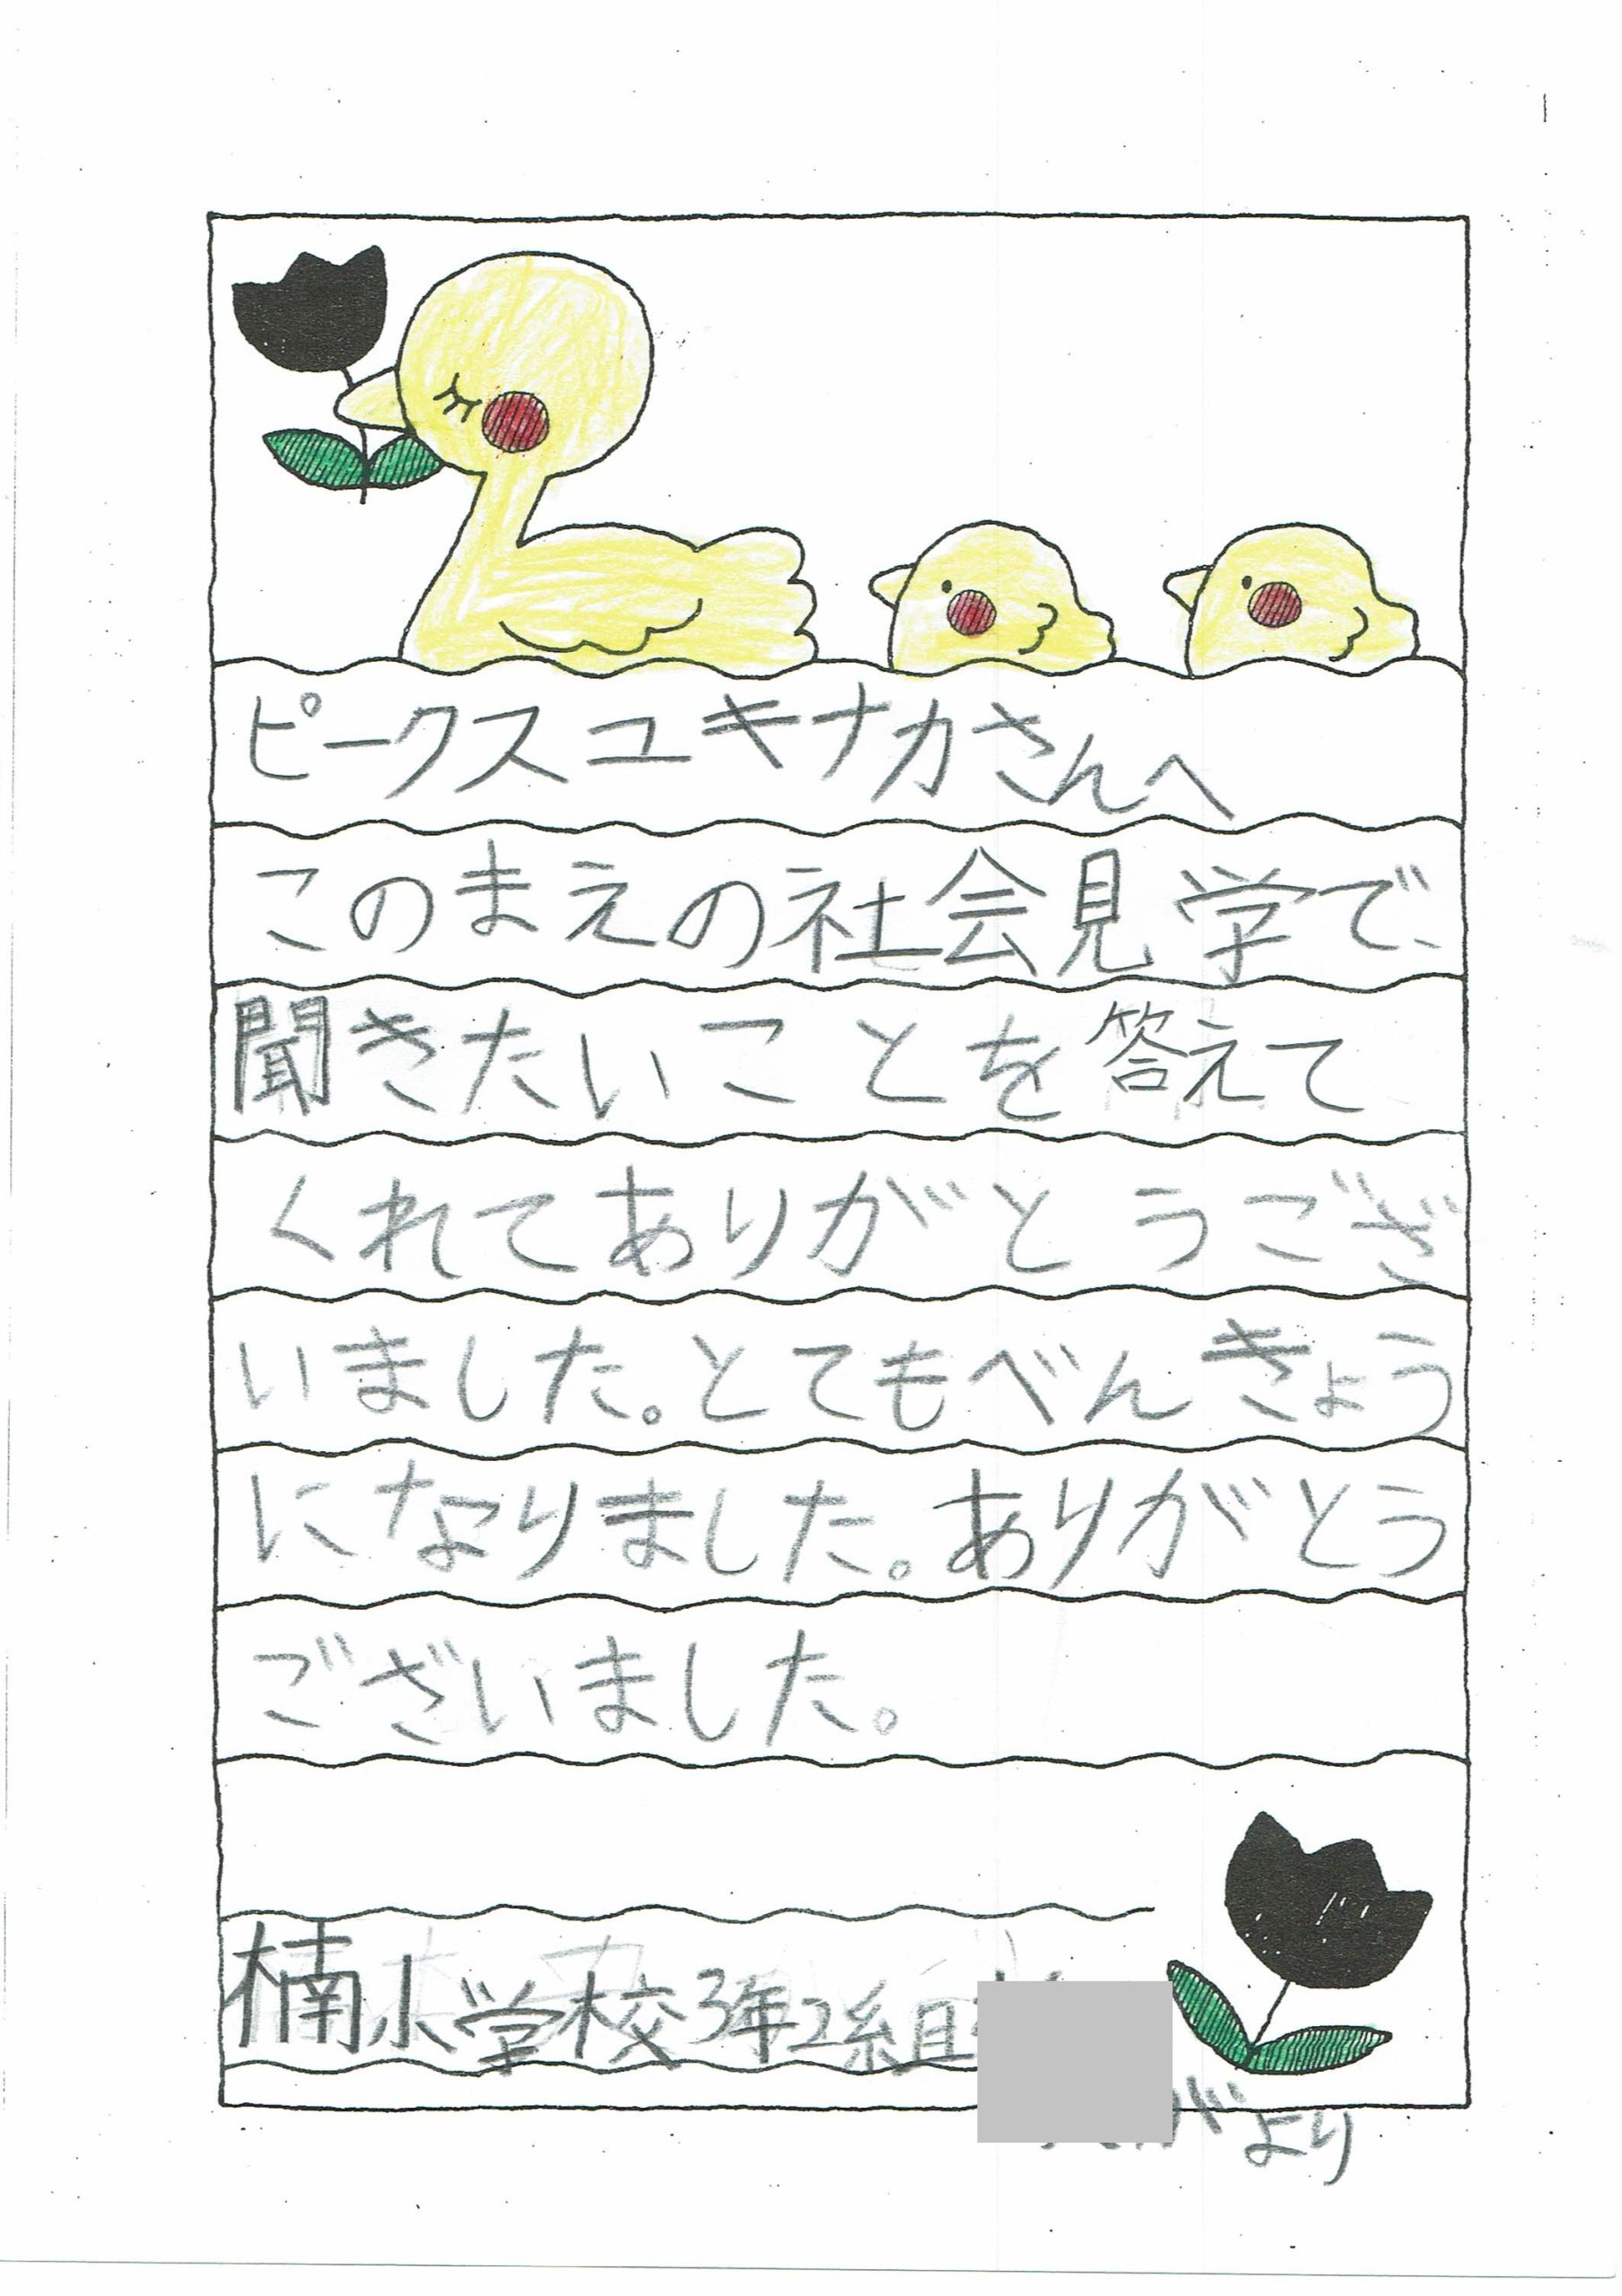 ピークスユキナカさんへ
このまえの社会見学で、
聞きたいことを答えて
くれてありがとうござ
いました。とてもべんきょう
になりました。ありがとう
ございました。
楠小学校3年2組
がより